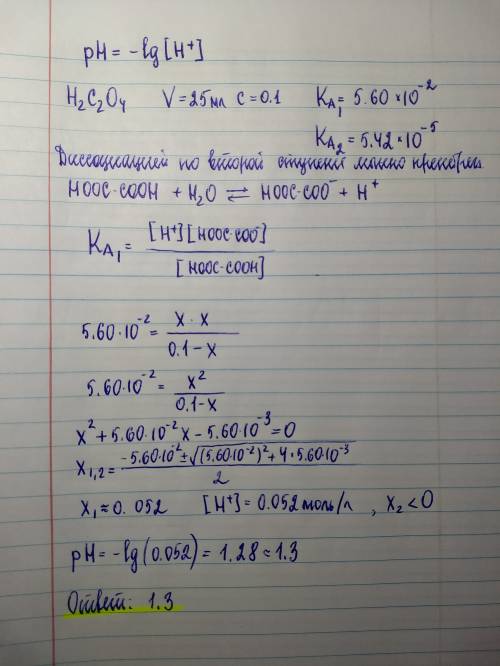 pH = -lg [H⁺]
H₂C₂O₄ V = 25 мл C = 0.1 K_A₁ = 5.60 × 10⁻²
K_A₂ = 5.42 × 10⁻⁵
Диссоциацией по второй ступени можно пренебречь
HOOC-COOH + H₂O ⇄ HOOC-COO⁻ + H⁺
K_A₁ = [H⁺][HOOC-COO⁻] / [HOOC-COOH]
5.60 · 10⁻² = X · X / 0.1 - X
5.60 · 10⁻² = X² / 0.1 - X
X² + 5.60 · 10⁻² X - 5.60 · 10⁻³ = 0
X₁,₂ = -5.60 · 10⁻² ± √(5.60 · 10⁻²)² + 4 · 5.60 · 10⁻³ / 2
X₁ ≈ 0.052 [H⁺] = 0.052 моль/л , X₂ < 0
pH = -lg (0.052) = 1.28 ≈ 1.3
Ответ: 1.3